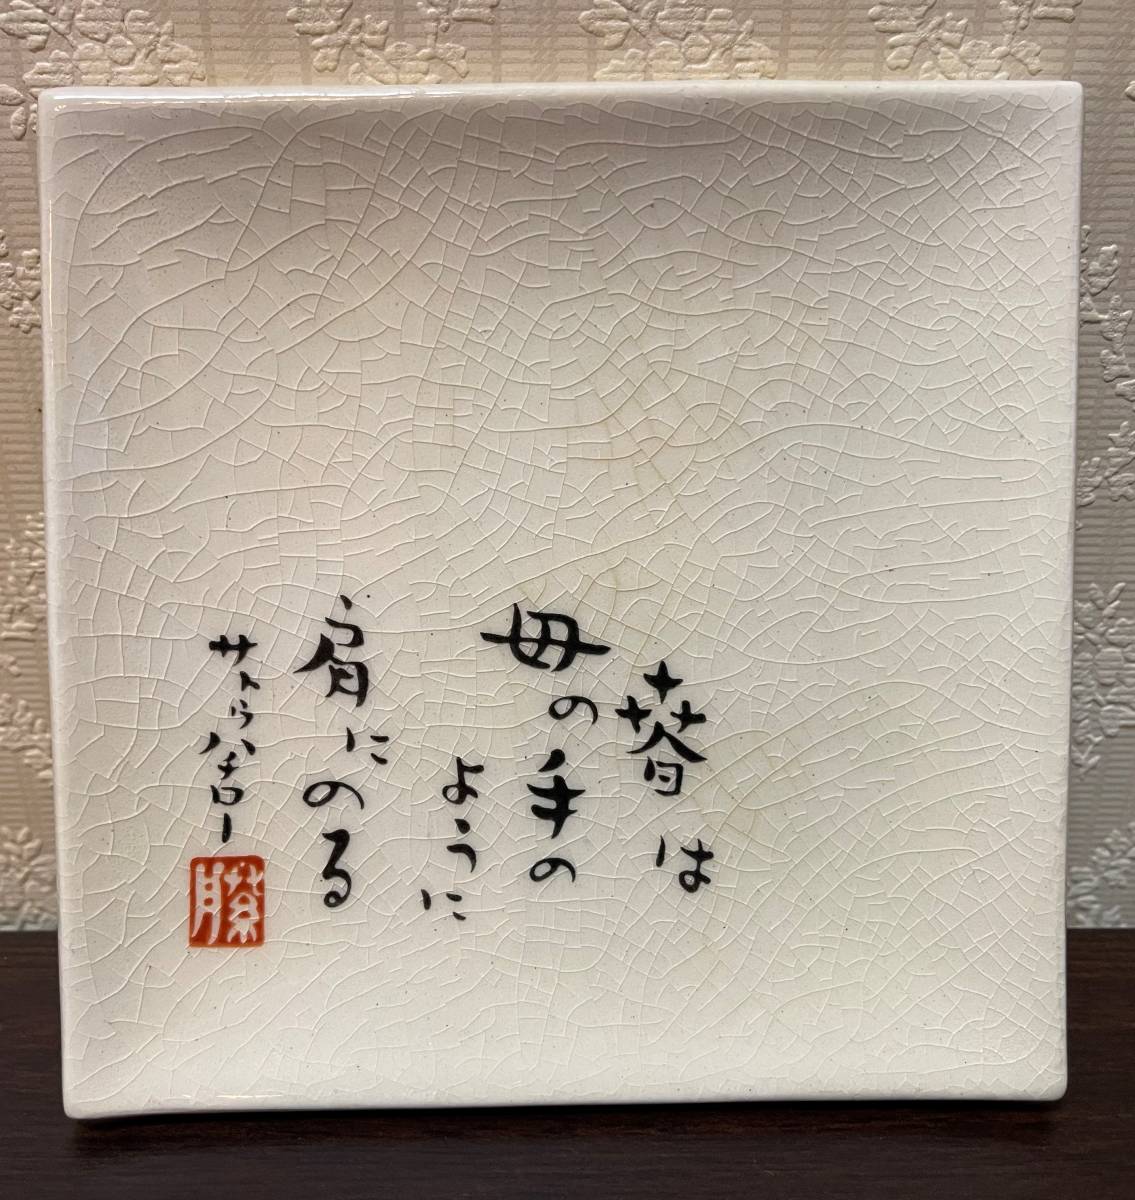 春は
母の手の
ように
肩にのる
サトウハチロー